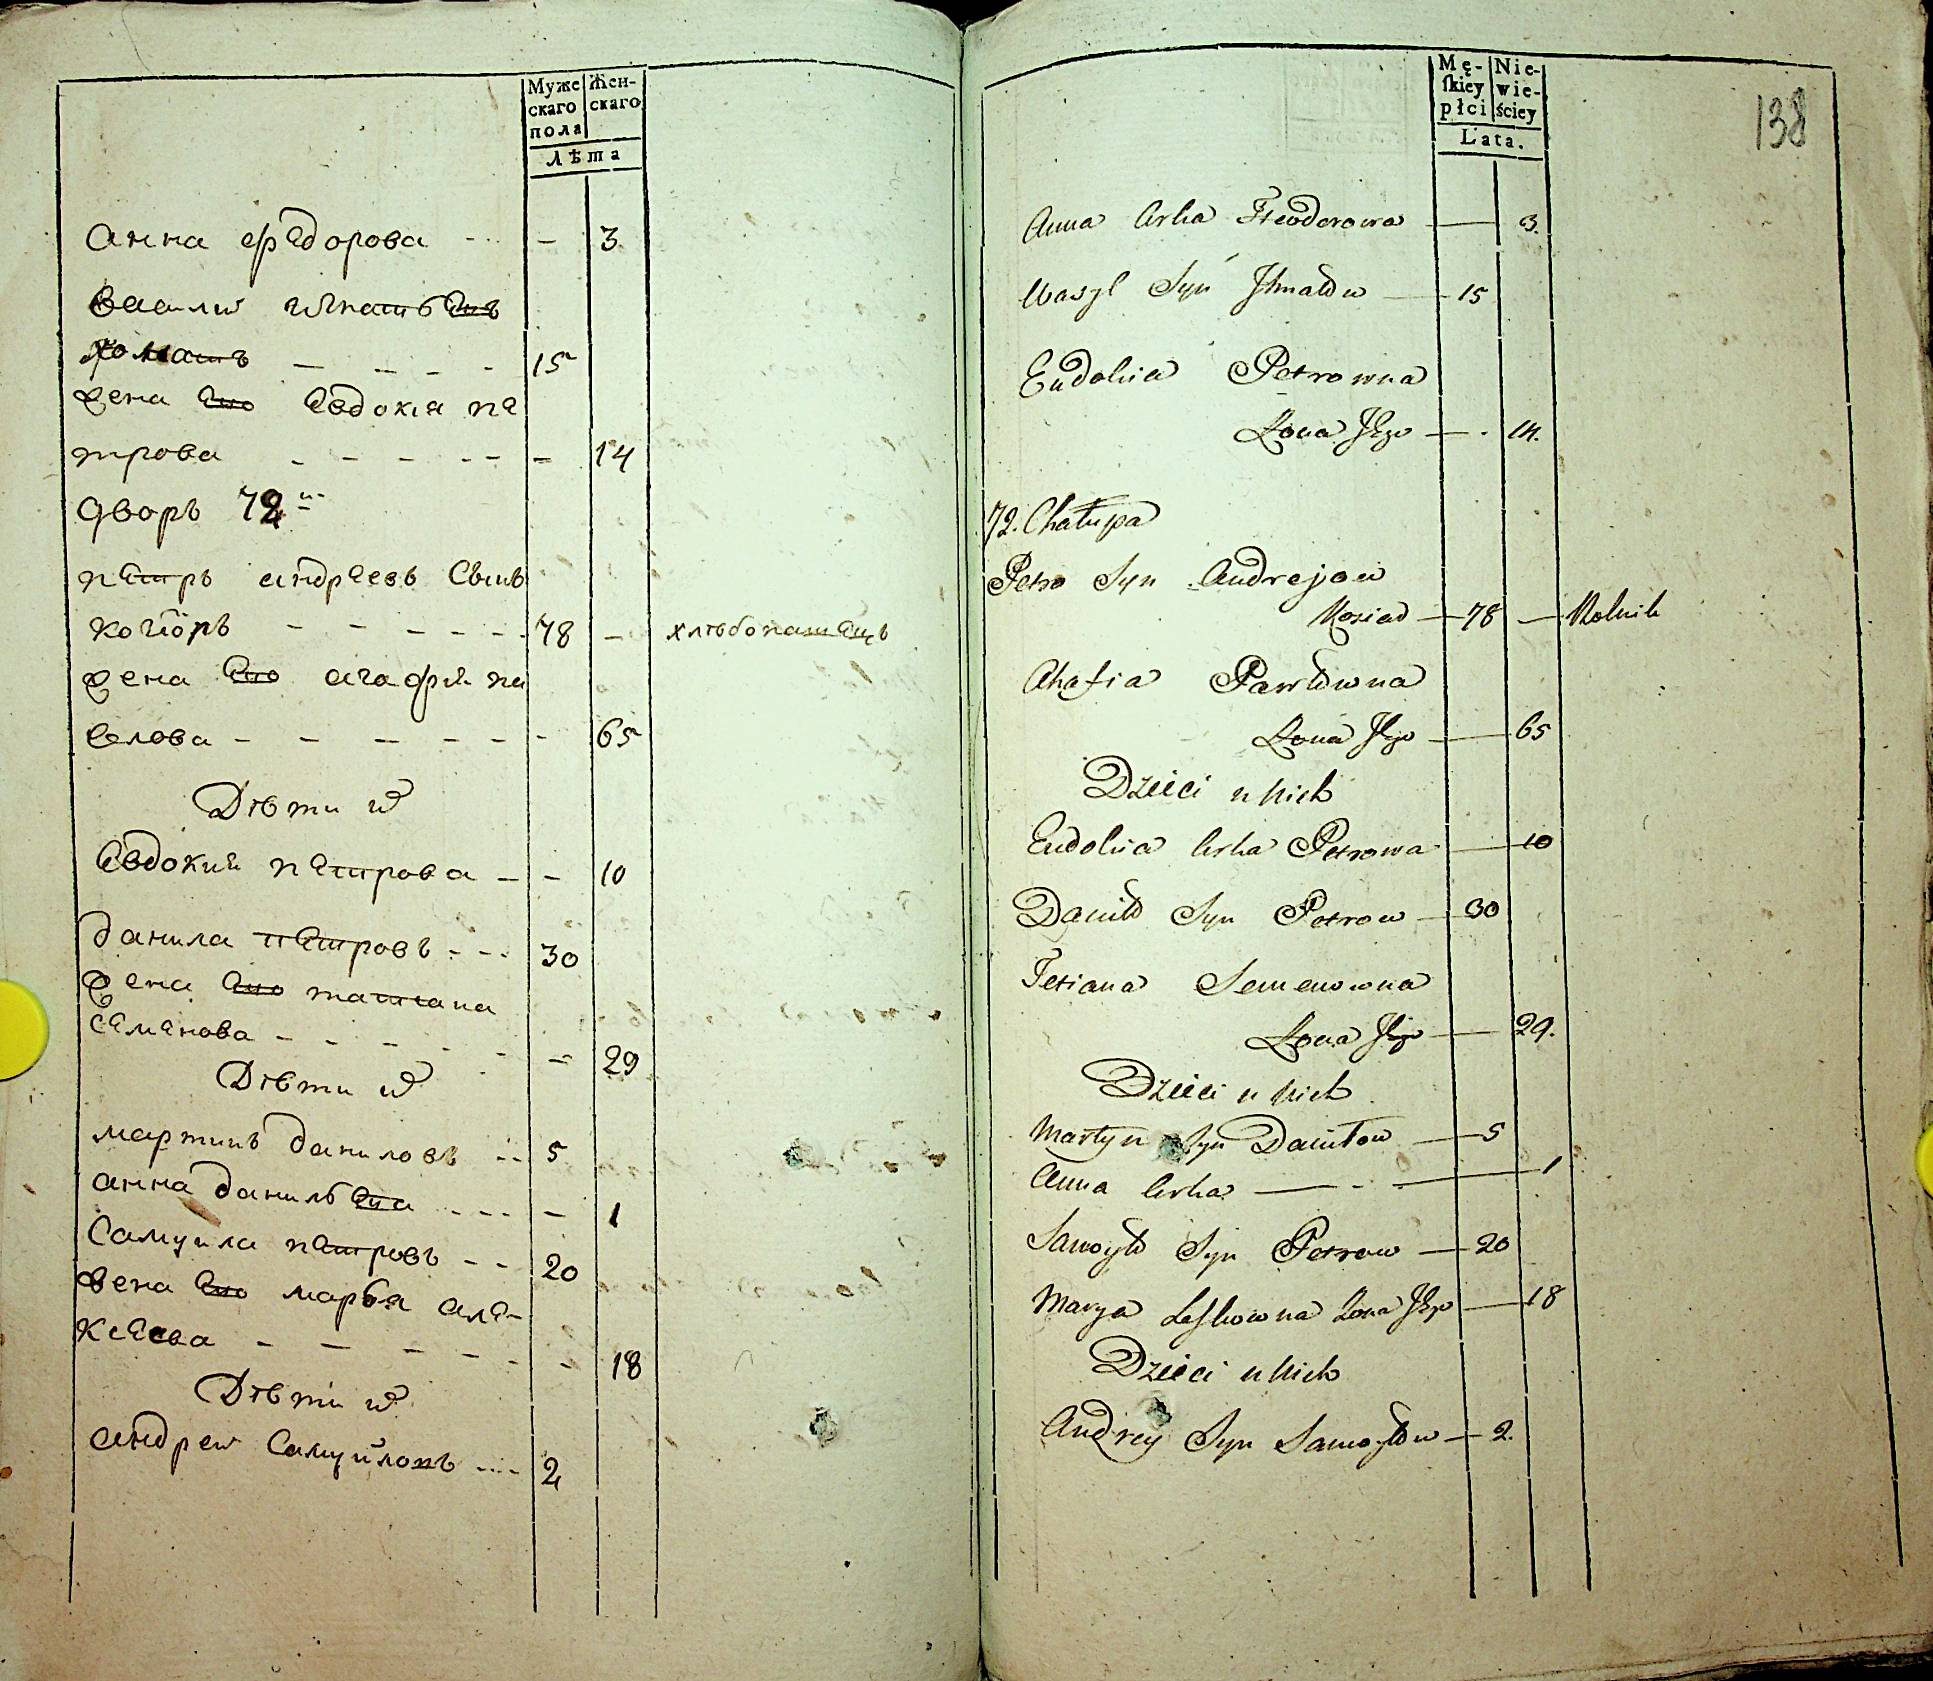 Муже Жен-
скаго скаго
пола
лѣта
анна федорова - 3
василий игнатьевъ
15
жена его евдокия пе
трова - 14
дворъ 72й
петръ андреевъ
78 - хлѣбопашецъ
жена его агафия па
влова - 65
Дѣти их
евдокия петрова - 10
данила петровъ 30
жена его татiана
семенова - 29
Дѣти их
мартинъ даниловъ 5
анна данильева - 1
самуила петровъ 20
жена его марья але-
ксеева - 18
Дѣти их
андрей самуйловъ 2
Mę- Nie-
skiey wie-
płci ściey
Lata.
138
Anna Crka Fteodorowa — 3.
Wasyl Syn Ihnatów — 15
Eudokia Petrowna
Żona Jego — 14.
72. Chałupa
Petro Syn Andrejow
78 — Rolnik
Ahafia Pawłowna
Żona Jego — 65
Dzieci u Nich
Eudokia Crka Petrowa — 10
Daniło Syn Petrow — 30
Tetiana Semenowna
Żona Jego — 29.
Dzieci u Nich
Martyn Syn Daniłow — 5
Anna Crka — 1
Samoyło Syn Petrow — 20
Marya Leśkowna Żona Jego — 18
Dzieci u Nich
Andrey Syn Samoyłow — 2.